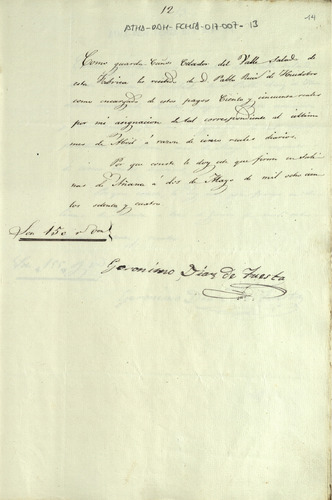 12
ATHA-DAH-FCMSB-017-007-13
14
Como guarda Caños Celador del Valle Salado de
esta Fabrica he recibido de D. Pablo Ruiz de Huidobro
como encargado de estos pagos Ciento y cincuenta reales
por mi asignacion de tal correspondiente al ultimo
mes de Abril á razon de cinco reales diarios.
Por que conste le doy este que firmo en Sali-
nas de Añana á dos de Mayo de mil ochocien-
tos setenta y cuatro
Son 150 rs. vn.
Geronimo Diaz de Tuesta